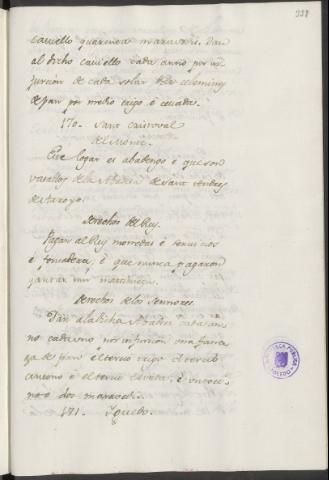 338
Castiello quarenta maravedis. Dan
al dicho castiello cada anno por in
furcion de cada solar dos celemines
de pan por medio trigo é cevada.
170. Sant Cristoval
del Monte.
Este logar es abadengo é que son
vasallos de la Abadesa de Sant Andres
de Arroyo.
Derechos del Rey.
Pagan al Rey monedas é servicios
é fonsadera, é que nunca pagaron
yantar nin martiniega.
Derechos de los Sennores.
Dan a la dicha Abadesa cada an
no cada uno por infurcion una fane
ga de pan el tercio trigo el tercio
centeno é el tercio cevada, é
dos maravedis.
171.
BIBLIOTECA PUBLICA
TOLEDO